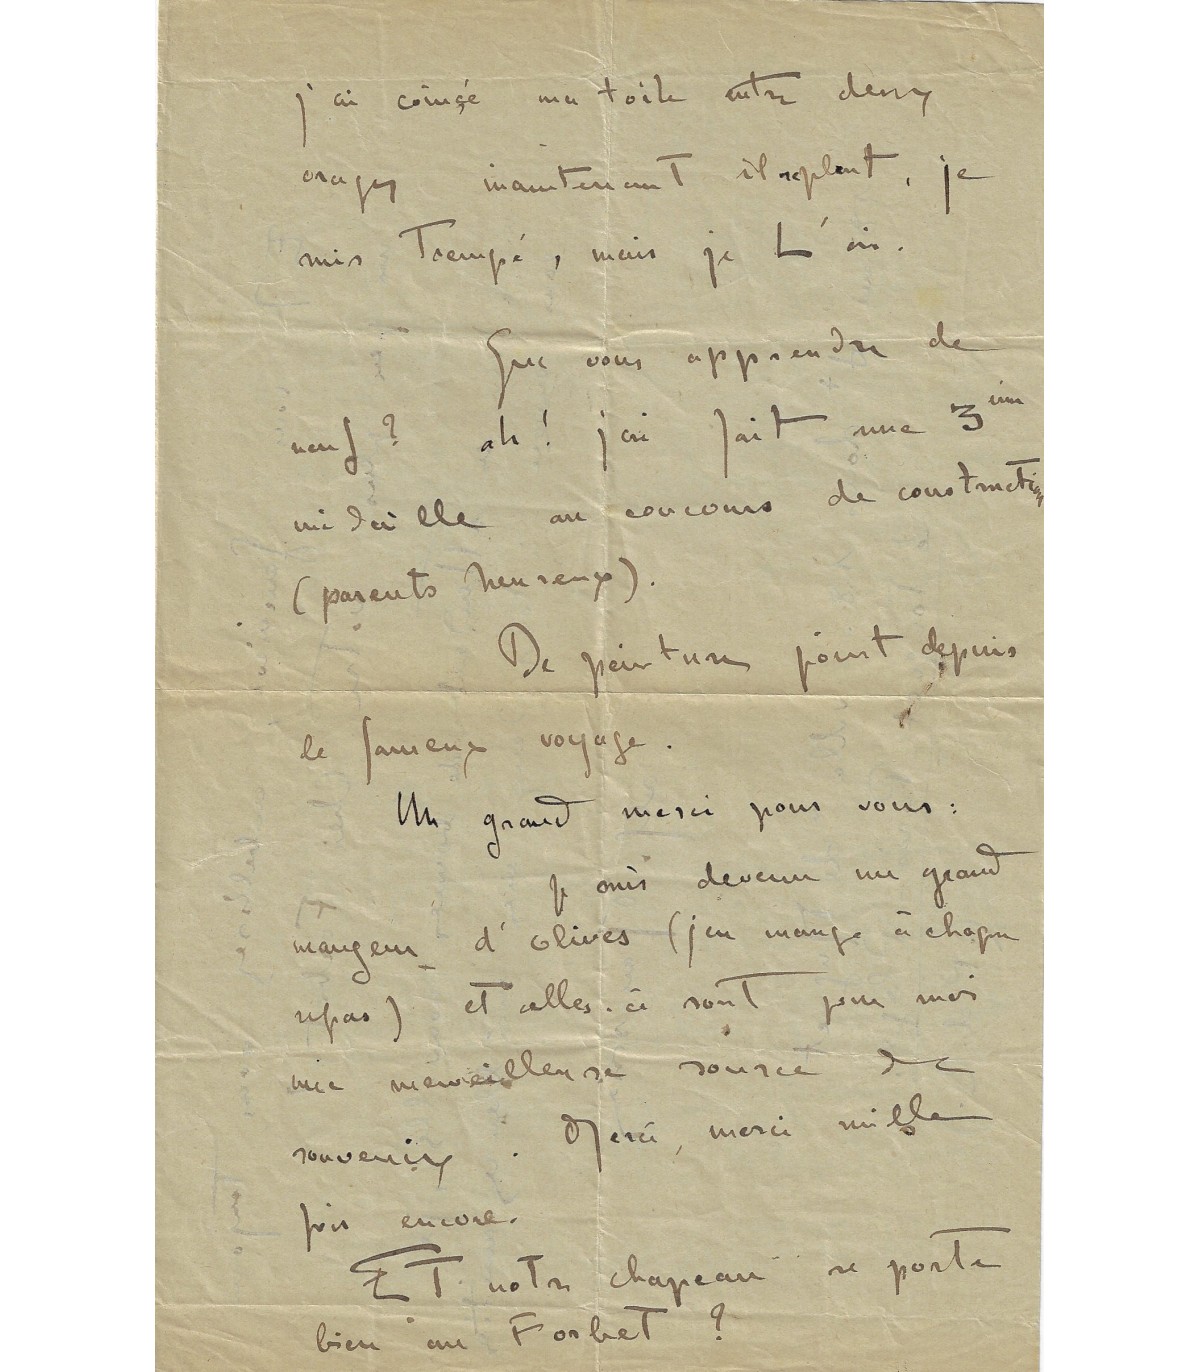 j'ai coinçé ma toile entre deux
orages maintenant il repleut, je
suis Trempé, mais je L'ai.
Que vous apprendre de
neuf? ah! j'ai fait une 3ième
médaille au concours de construction
(parents heureux).
De peinture point depuis
le fameux voyage.
Un grand merci pour vous:
je suis devenu un grand
mangeur d'olives (j'en mange à chaque
repas) et celles-ci sont pour moi
une merveilleuse source de
souvenirs. Merci, merci mille
fois encore.
ET notre chapeau se porte
bien au Forbet?